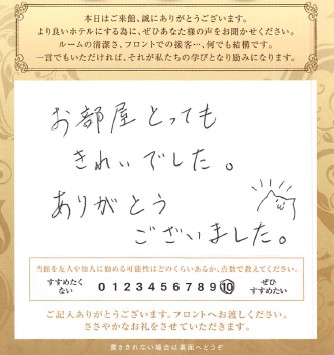 本日はご来館、誠にありがとうございます。
より良いホテルにする為に、ぜひあなた様の声をお聞かせください。
ルームの清潔さ、フロントでの接客…、何でも結構です。
一言でもいただければ、それが私たちの学びとなり励みになります。
お部屋とっても
きれいでした。
ありがとう
ございました。
当館を友人や知人に勧める可能性はどのくらいあるか、点数で教えてください。
すすめたく
ない
0 1 2 3 4 5 6 7 8 9 10
ぜひ
すすめたい
ご記入ありがとうございます。フロントへお渡しください。
ささやかなお礼をさせていただきます。
書ききれない場合は裏面へどうぞ